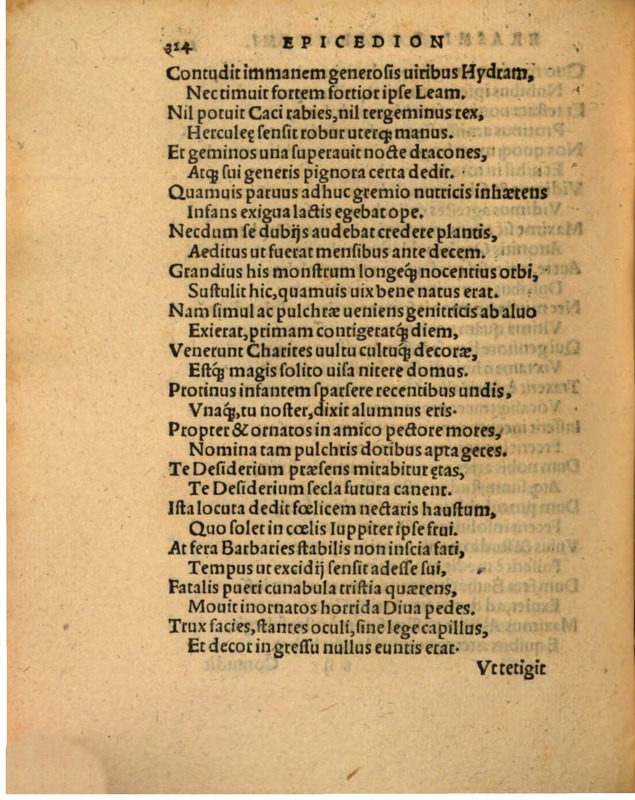 314 EPICEDION
Contudit immanem generosis uiribus Hydram,
Nec timuit fortem fortior ipse Leam.
Nil potuit Caci rabies, nil tergeminus rex,
Herculeę sensit robur uterq́ꝫ manus.
Et geminos una superauit nocte dracones,
Atqꝫ sui generis pignora certa dedit.
Quamuis paruus adhuc gremio nutricis inhærens
Infans exigua lactis egebat ope.
Necdum se dubijs audebat credere plantis,
Aeditus ut fuerat mensibus ante decem.
Grandius his monstrum longeq́ꝫ nocentius orbi,
Sustulit hic, quamuis uix bene natus erat.
Nam simul ac pulchræ ueniens genitricis ab aluo
Exierat, primam contigeratq́ꝫ diem,
Venerunt Charites uultu cultuq́ꝫ decoræ,
Estq́ꝫ magis solito uisa nitere domus.
Protinus infantem sparsere recentibus undis,
Vnaq́ꝫ, tu noster, dixit alumnus eris.
Propter & ornatos in amico pectore mores,
Nomina tam pulchris dotibus apta geres.
Te Desiderium præsens mirabitur ętas,
Te Desiderium secla futura canent.
Ista locuta dedit fœlicem nectaris haustum,
Quo solet in cœlis Iuppiter ipse frui.
At fera Barbaries stabilis non inscia fati,
Tempus ut excidij sensit adesse sui,
Fatalis pueri cunabula tristia quærens,
Mouit inornatos horrida Diua pedes.
Trux facies, stantes oculi, sine lege capillus,
Et decor in gressu nullus euntis erat.
Vt tetigit